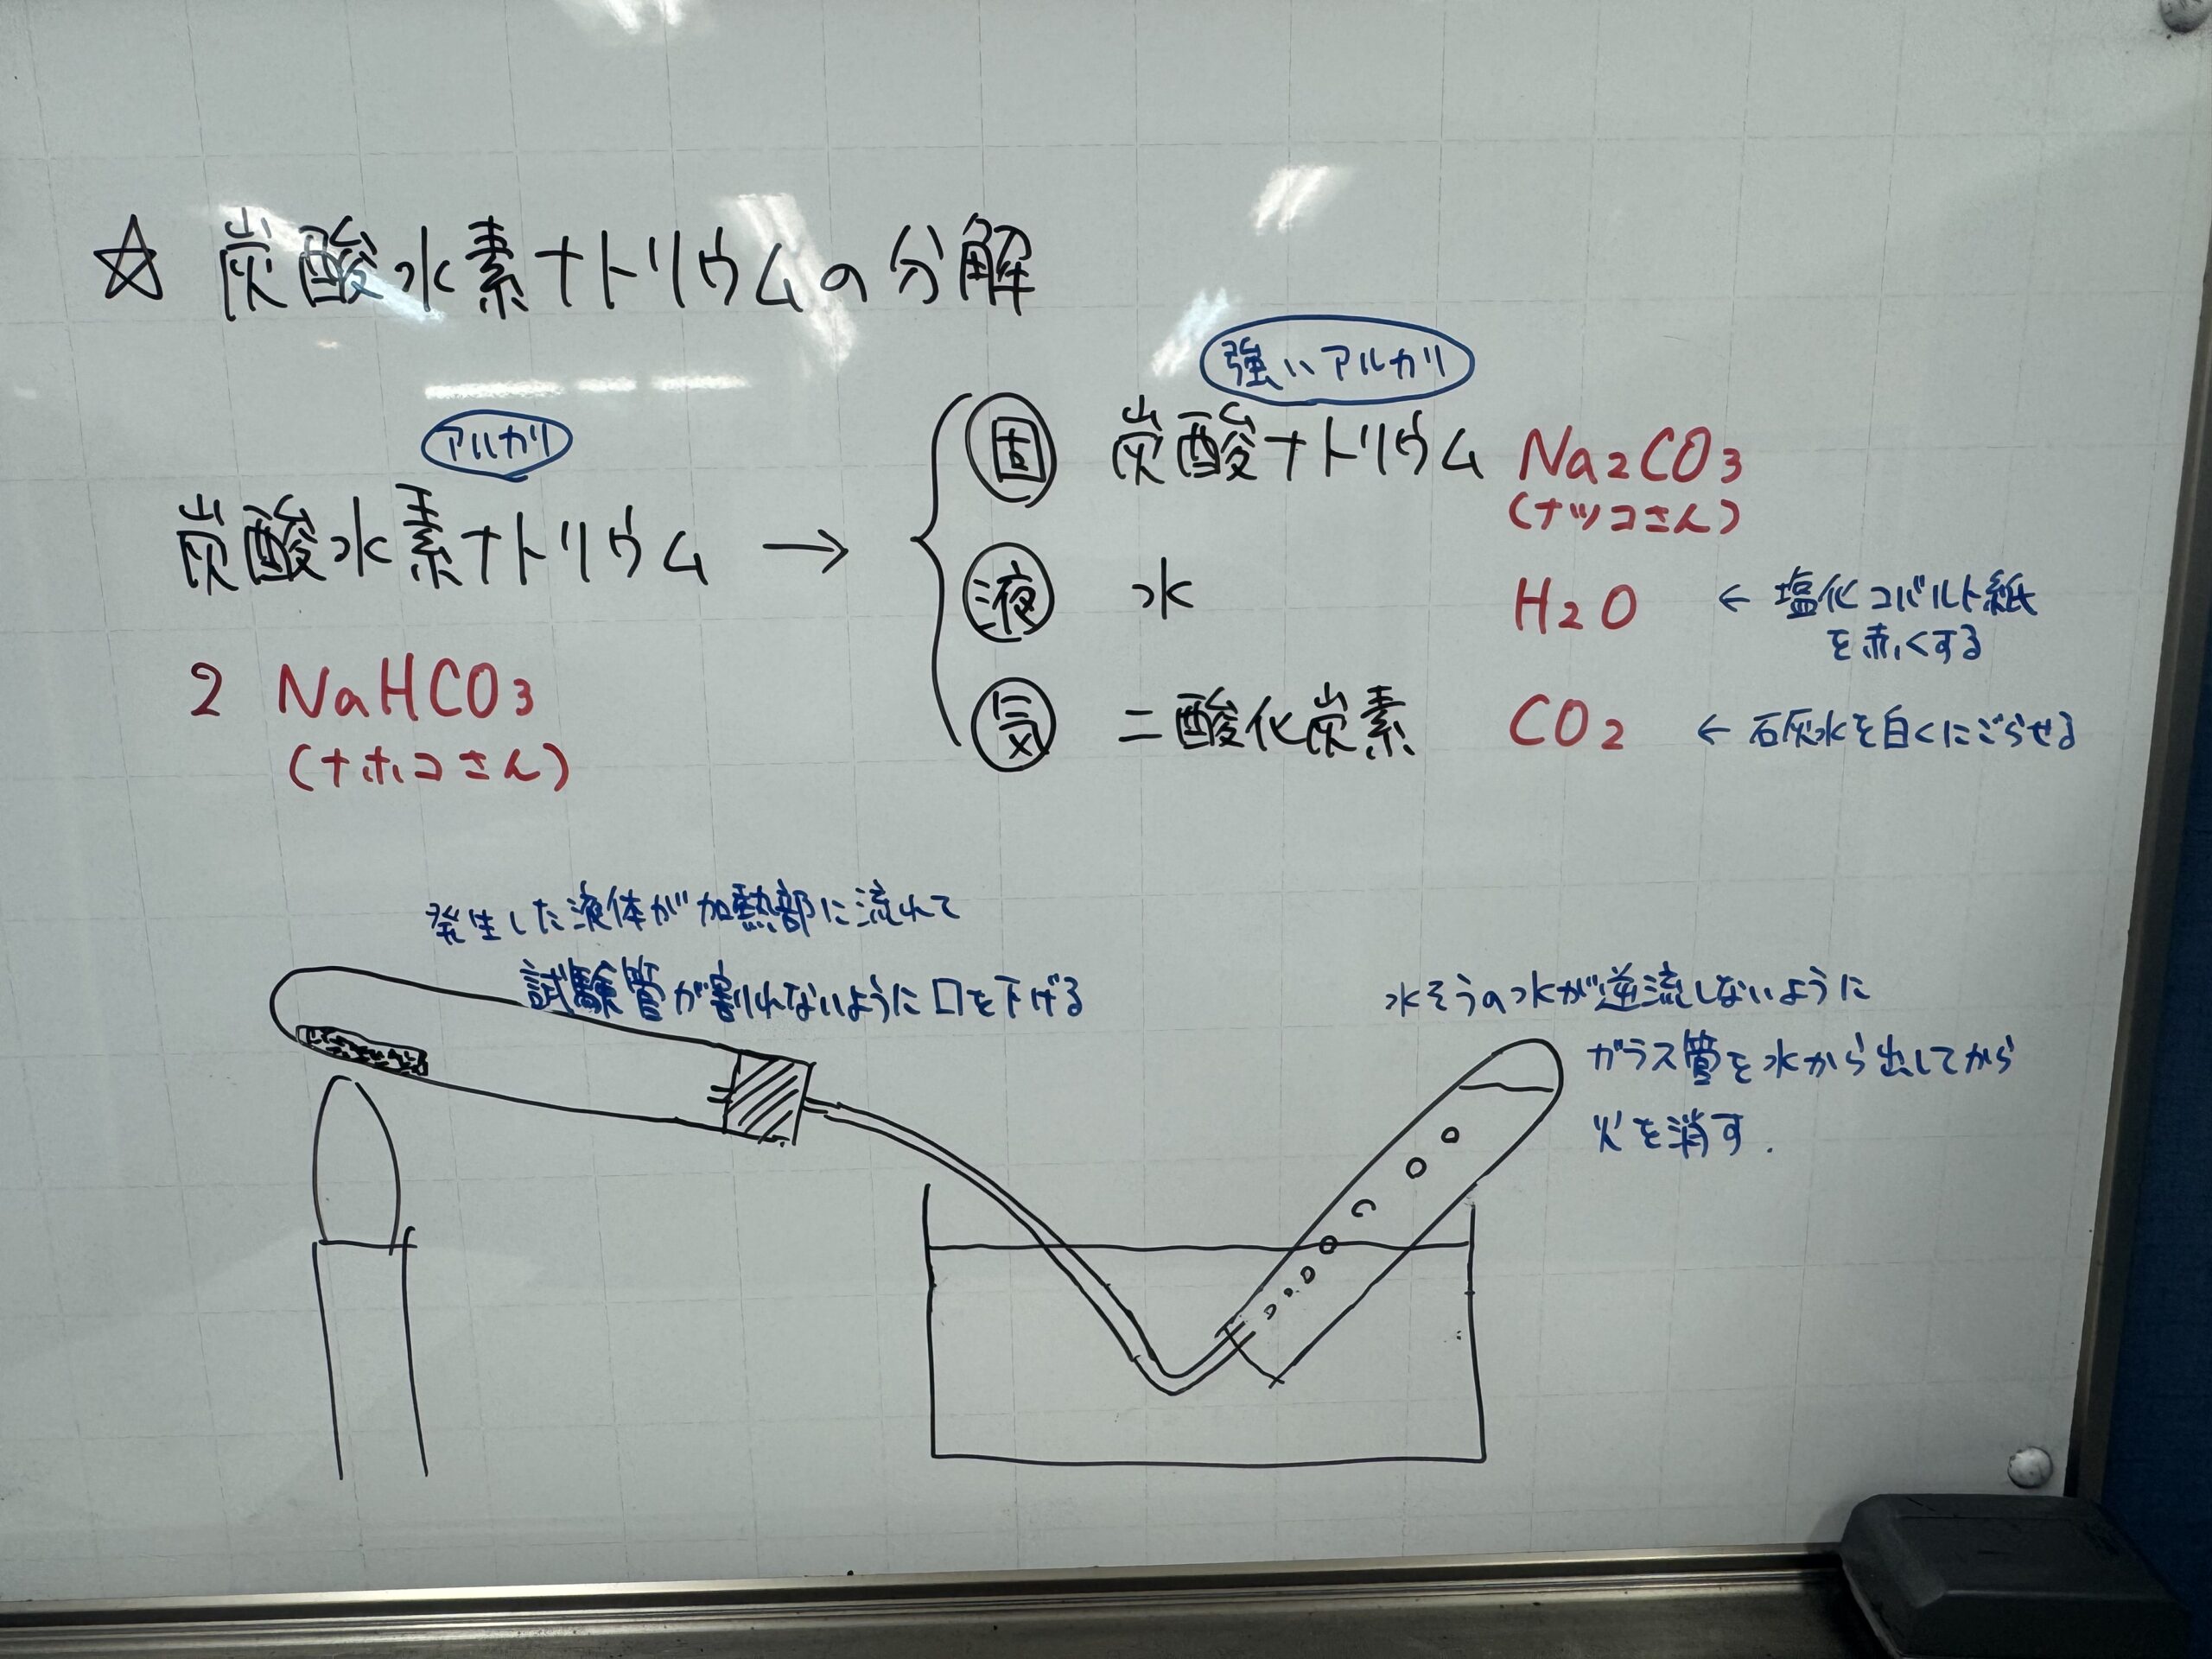 ☆ 炭酸水素ナトリウムの分解
アルカリ
炭酸水素ナトリウム →
2 NaHCO3
(ナホコさん)
強いアルカリ
固 炭酸ナトリウム Na2CO3
(ナツコさん)
液 水 H2O ← 塩化コバルト紙
を赤くする
気 二酸化炭素 CO2 ← 石灰水を白くにごらせる
発生した液体が加熱部に流れて
試験管が割れないように口を下げる
水そうの水が逆流しないように
ガラス管を水から出してから
火を消す.